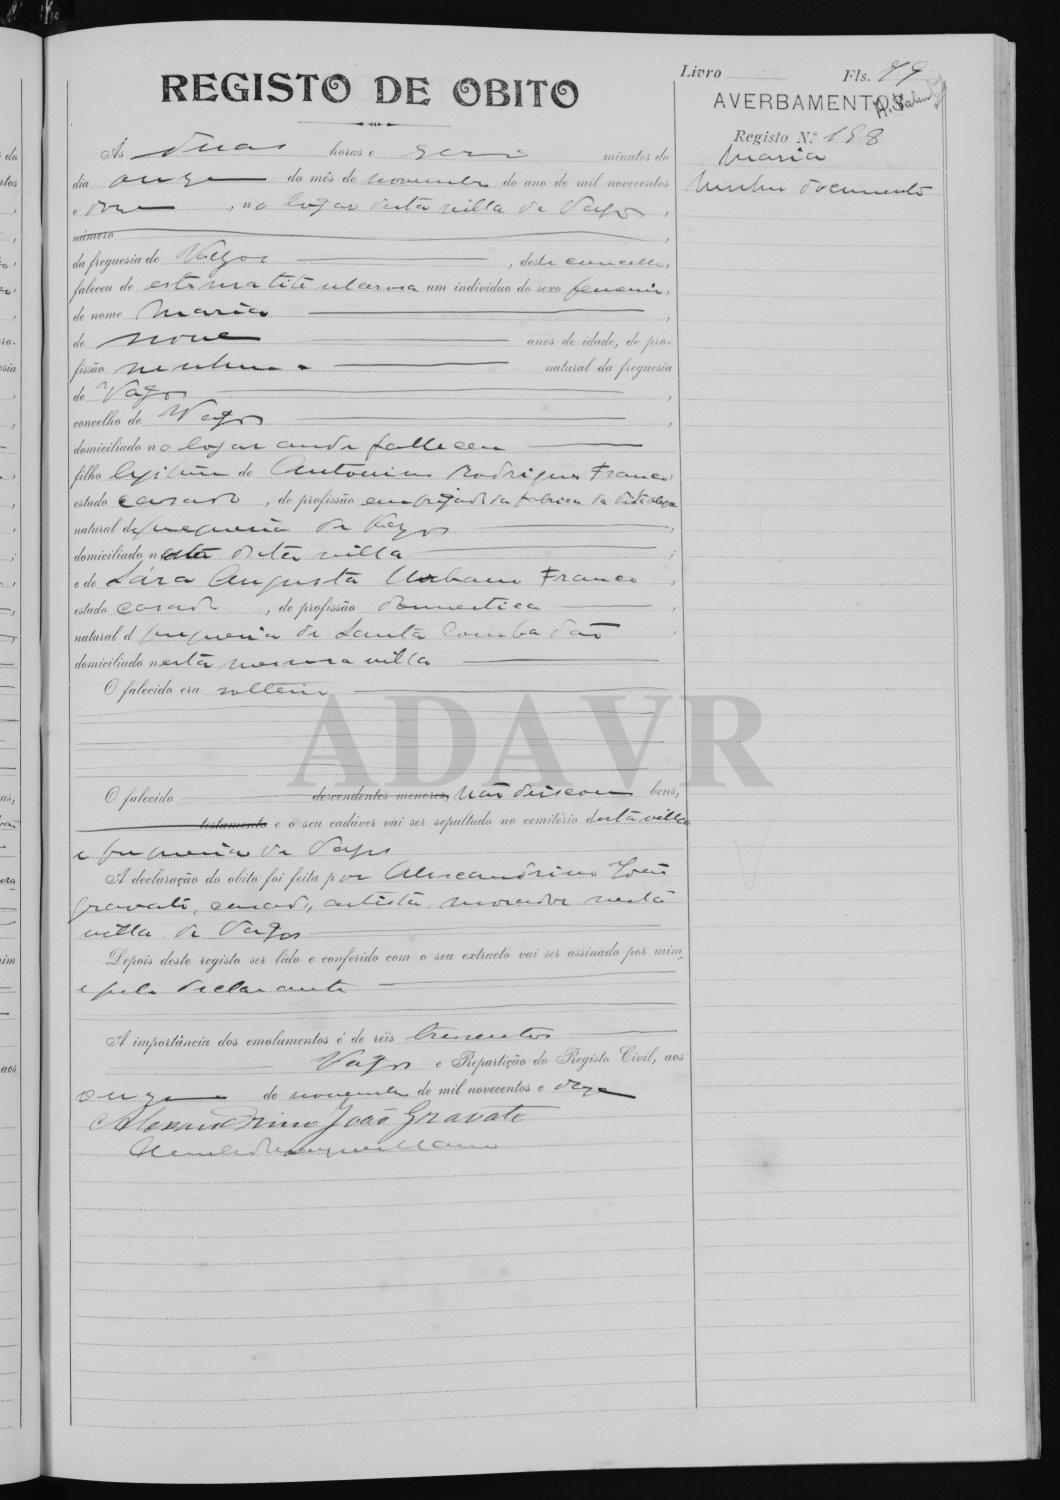 REGISTO DE OBITO
Livro Fls. 99
AVERBAMENTOS
Registo N.º 198
Maria
Nenhum documento
Às duas horas e zero minutos do
dia onze do mês de novembro do ano de mil novecentos
e doze, no logar desta villa de Vagos,
número
da freguesia de Vagos, deste concelho,
faleceu de um indivíduo do sexo femenin,
de nome Maria,
de nove anos de idade, de pro-
fissão nenhuma natural da freguesia
de Vagos,
concelho de Vagos,
domiciliado no logar onde falleceu
filho legitim de Antonino Rodrigues Franco
estado casado, de profissão empregado da fabrica da
natural de freguesia de Vagos,
domiciliado nesta dita villa;
e de Lára Augusta Urbano Franco,
estado casada, de profissão domestica,
natural d freguesia de Santa Comba Dão,
domiciliado nesta mesma villa
O falecido era solteira
O falecido descendentes menores, não deixou bens,
testamento e o seu cadáver vai ser sepultado no cemitério desta villa
e freguesia de Vagos
A declaração do obito foi feita por Alexandrino João
Gravato, casado, artista, morador nesta
villa de Vagos
Depois deste registo ser lido e conferido com o seu extracto vai ser assinado por mim,
e pelo declarante
A importância dos emolumentos é de réis trezentos
Vagos e Repartição do Registo Civil, aos
onze de novembro de mil novecentos e doze
Alexandrino João Gravato
ADAVR